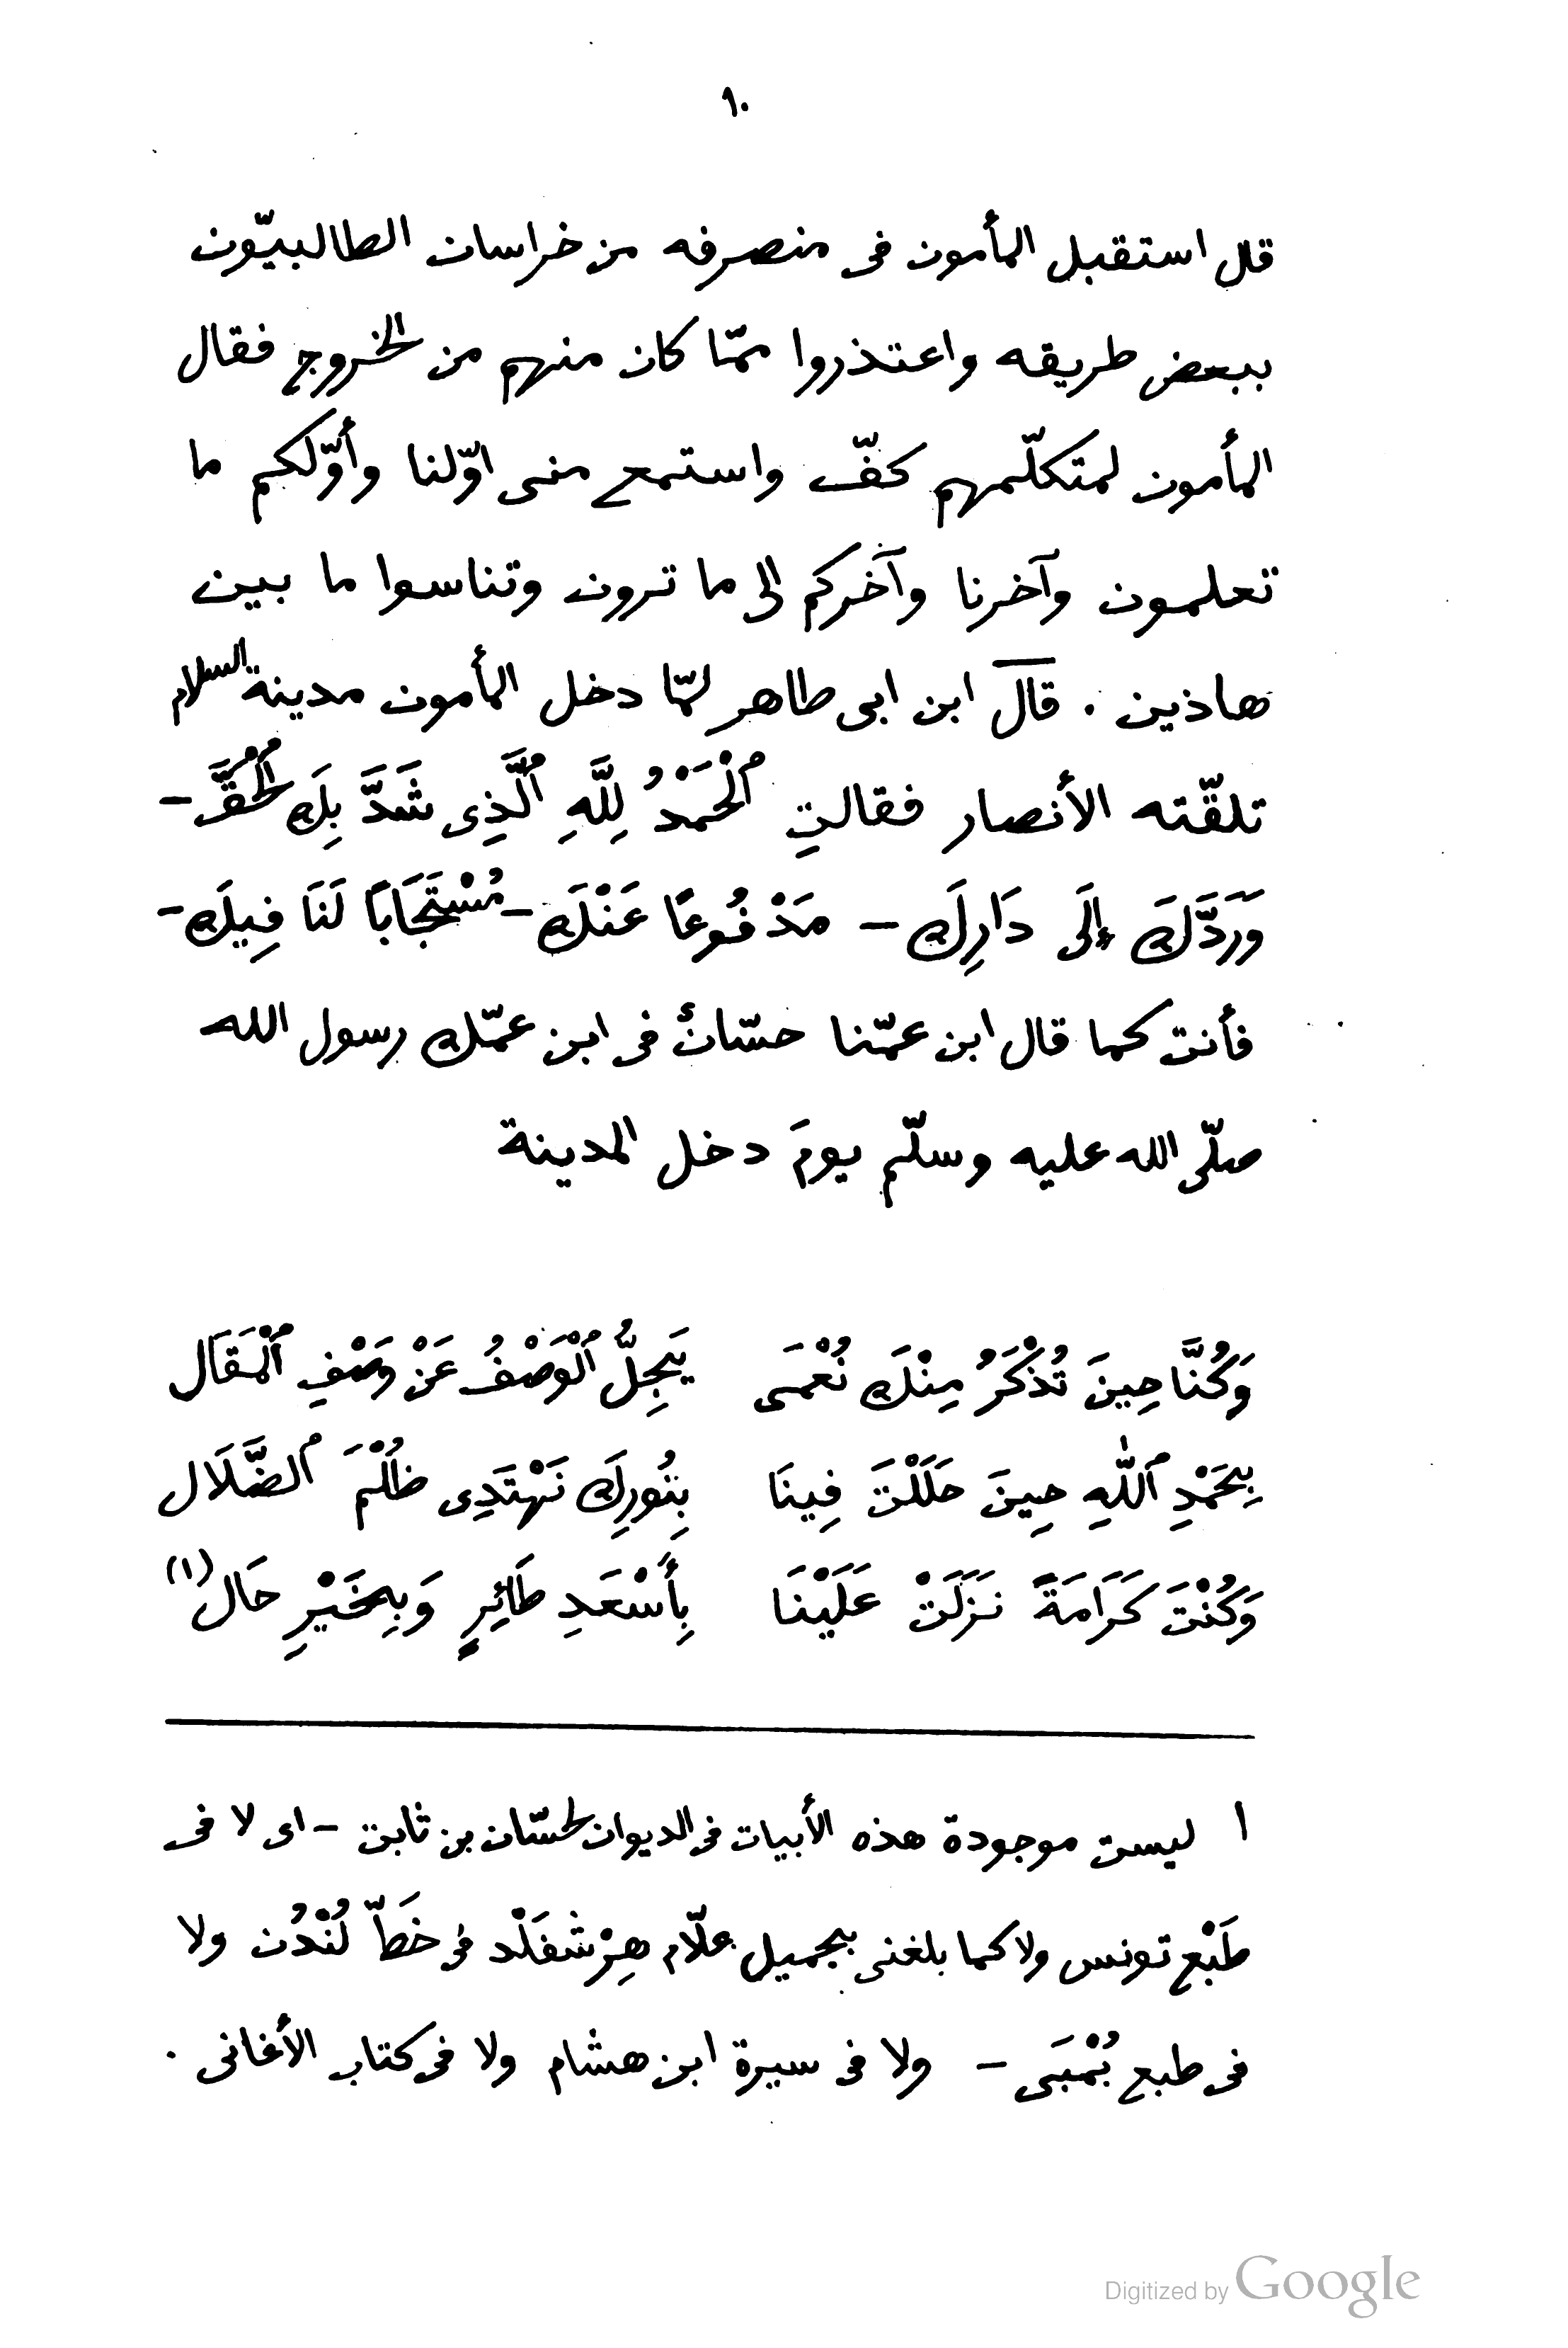 ١٠
قال استقبل المأمون فى منصرفه من خراسان الطالبيّون
ببعض طريقه واعتذروا ممّا كان منهم من الخروج فقال
المأمون لمتكلّمهم كفّ واستمع منى اوّلنا وأوّلكم ما
تعلمون وآخرنا وآخركم الى ما ترون وتناسوا ما بين
هاذين . قال ابن ابى طاهر لمّا دخل المأمون مدينة السلام
تلقّته الأنصار فقالتِ ٱلْحَمْدُ لِلَّهِ ٱلَّذِى شَدَّ بِكَ ٱلْحُقَّ –
وَرَدَّكَ إِلَى دَارِكَ – مَدْفُوعًا عَنْكَ – مُسْتَجَابًا لَنَا فِيكَ –
فأنت كما قال ابن عمّنا حسّانُ فى ابن عمّك رسول الله
صلّى الله عليه وسلّم يومَ دخل المدينة
وَكُنَّا حِينَ تُذْكَرُ مِنْكَ نُعْمَى يَجِلُّ ٱلْوَصْفُ عَنْ وَصْفِ ٱلْمَقَال
بِحَمْدِ ٱللّٰهِ حِينَ حَلَلْتَ فِينَا بِنُورِكَ نَهْتَدِى ظُلْمَ ٱلضَّلَال
وَكُنْتَ كَرَامَةً نَزَلَتْ عَلَيْنَا بِأَسْعَدِ طَائِرٍ وَبِخَيْرِ حَال (١)
١ ليست موجودة هذه الأبيات فى الديوان لحسّان بن ثابت – اى لا فى
طَبْع تونس ولا كما بلغنى بجميل علّام هِرْشفَلْد فى خَطّ لُنْدُن ولا
فى طبع بُمْبَى – ولا فى سيرة ابن هشام ولا فى كتاب الأغانى .
Digitized by Google